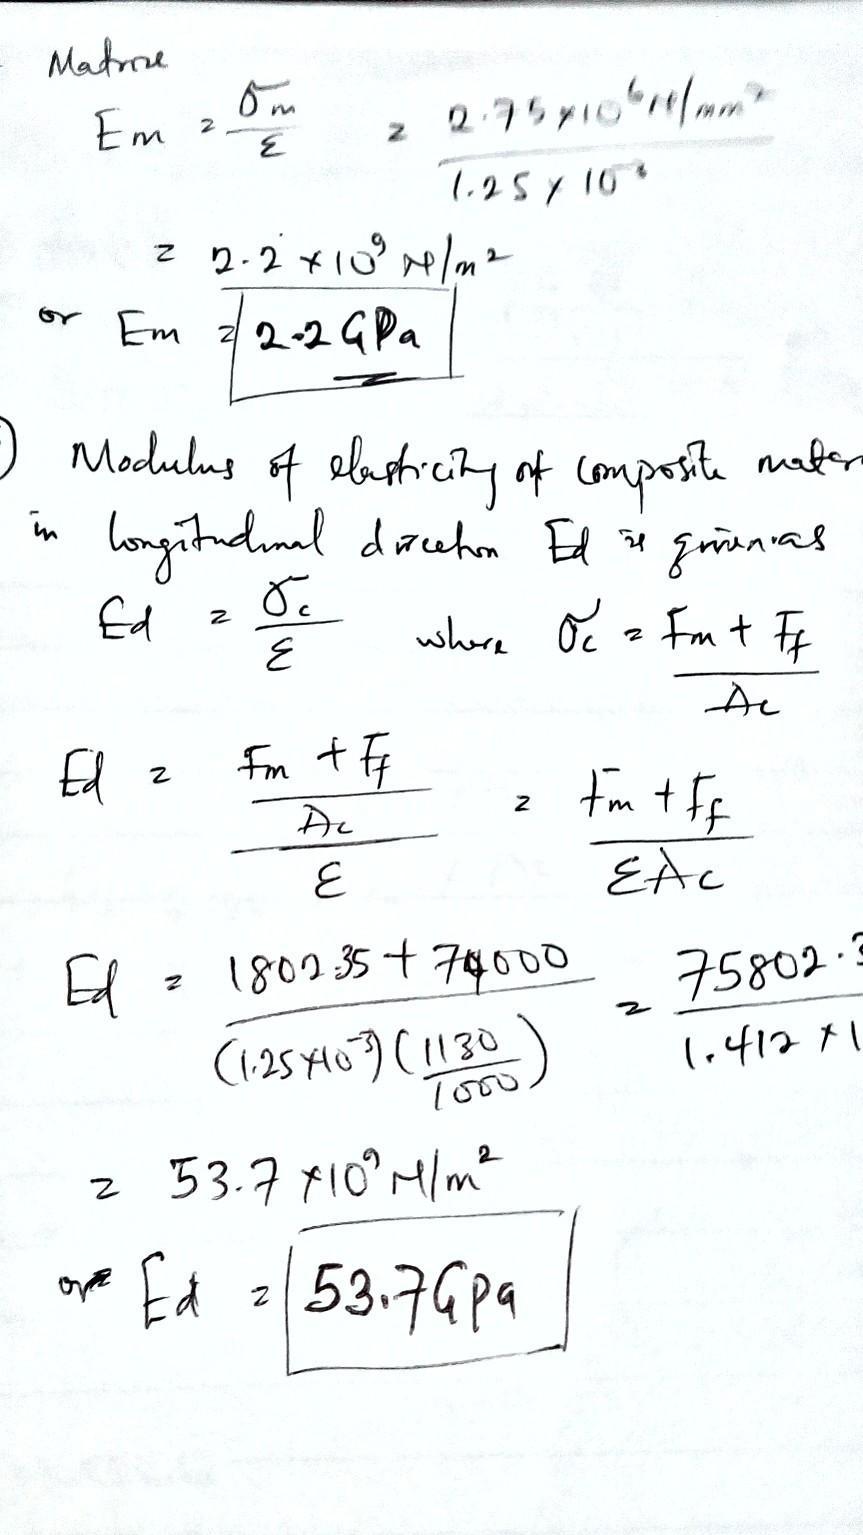 Matrix
Em = σm/ε = 2.75 × 10⁶ N/mm² / 1.25 × 10⁻³
= 2.2 × 10⁹ N/m²
or Em = 2.2 GPa
Modulus of elasticity of composite mater
in longitudinal direction Ed is given as
Ed = σc/ε where σc = Fm + Ff / Ac
Ed = Fm + Ff / Ac / ε = Fm + Ff / εAc
Ed = 1802.35 + 74000 / (1.25×10⁻³) (1130/1000) = 75802.3 / 1.412 × 1
= 53.7 × 10⁹ N/m²
or Ed = 53.7 GPa